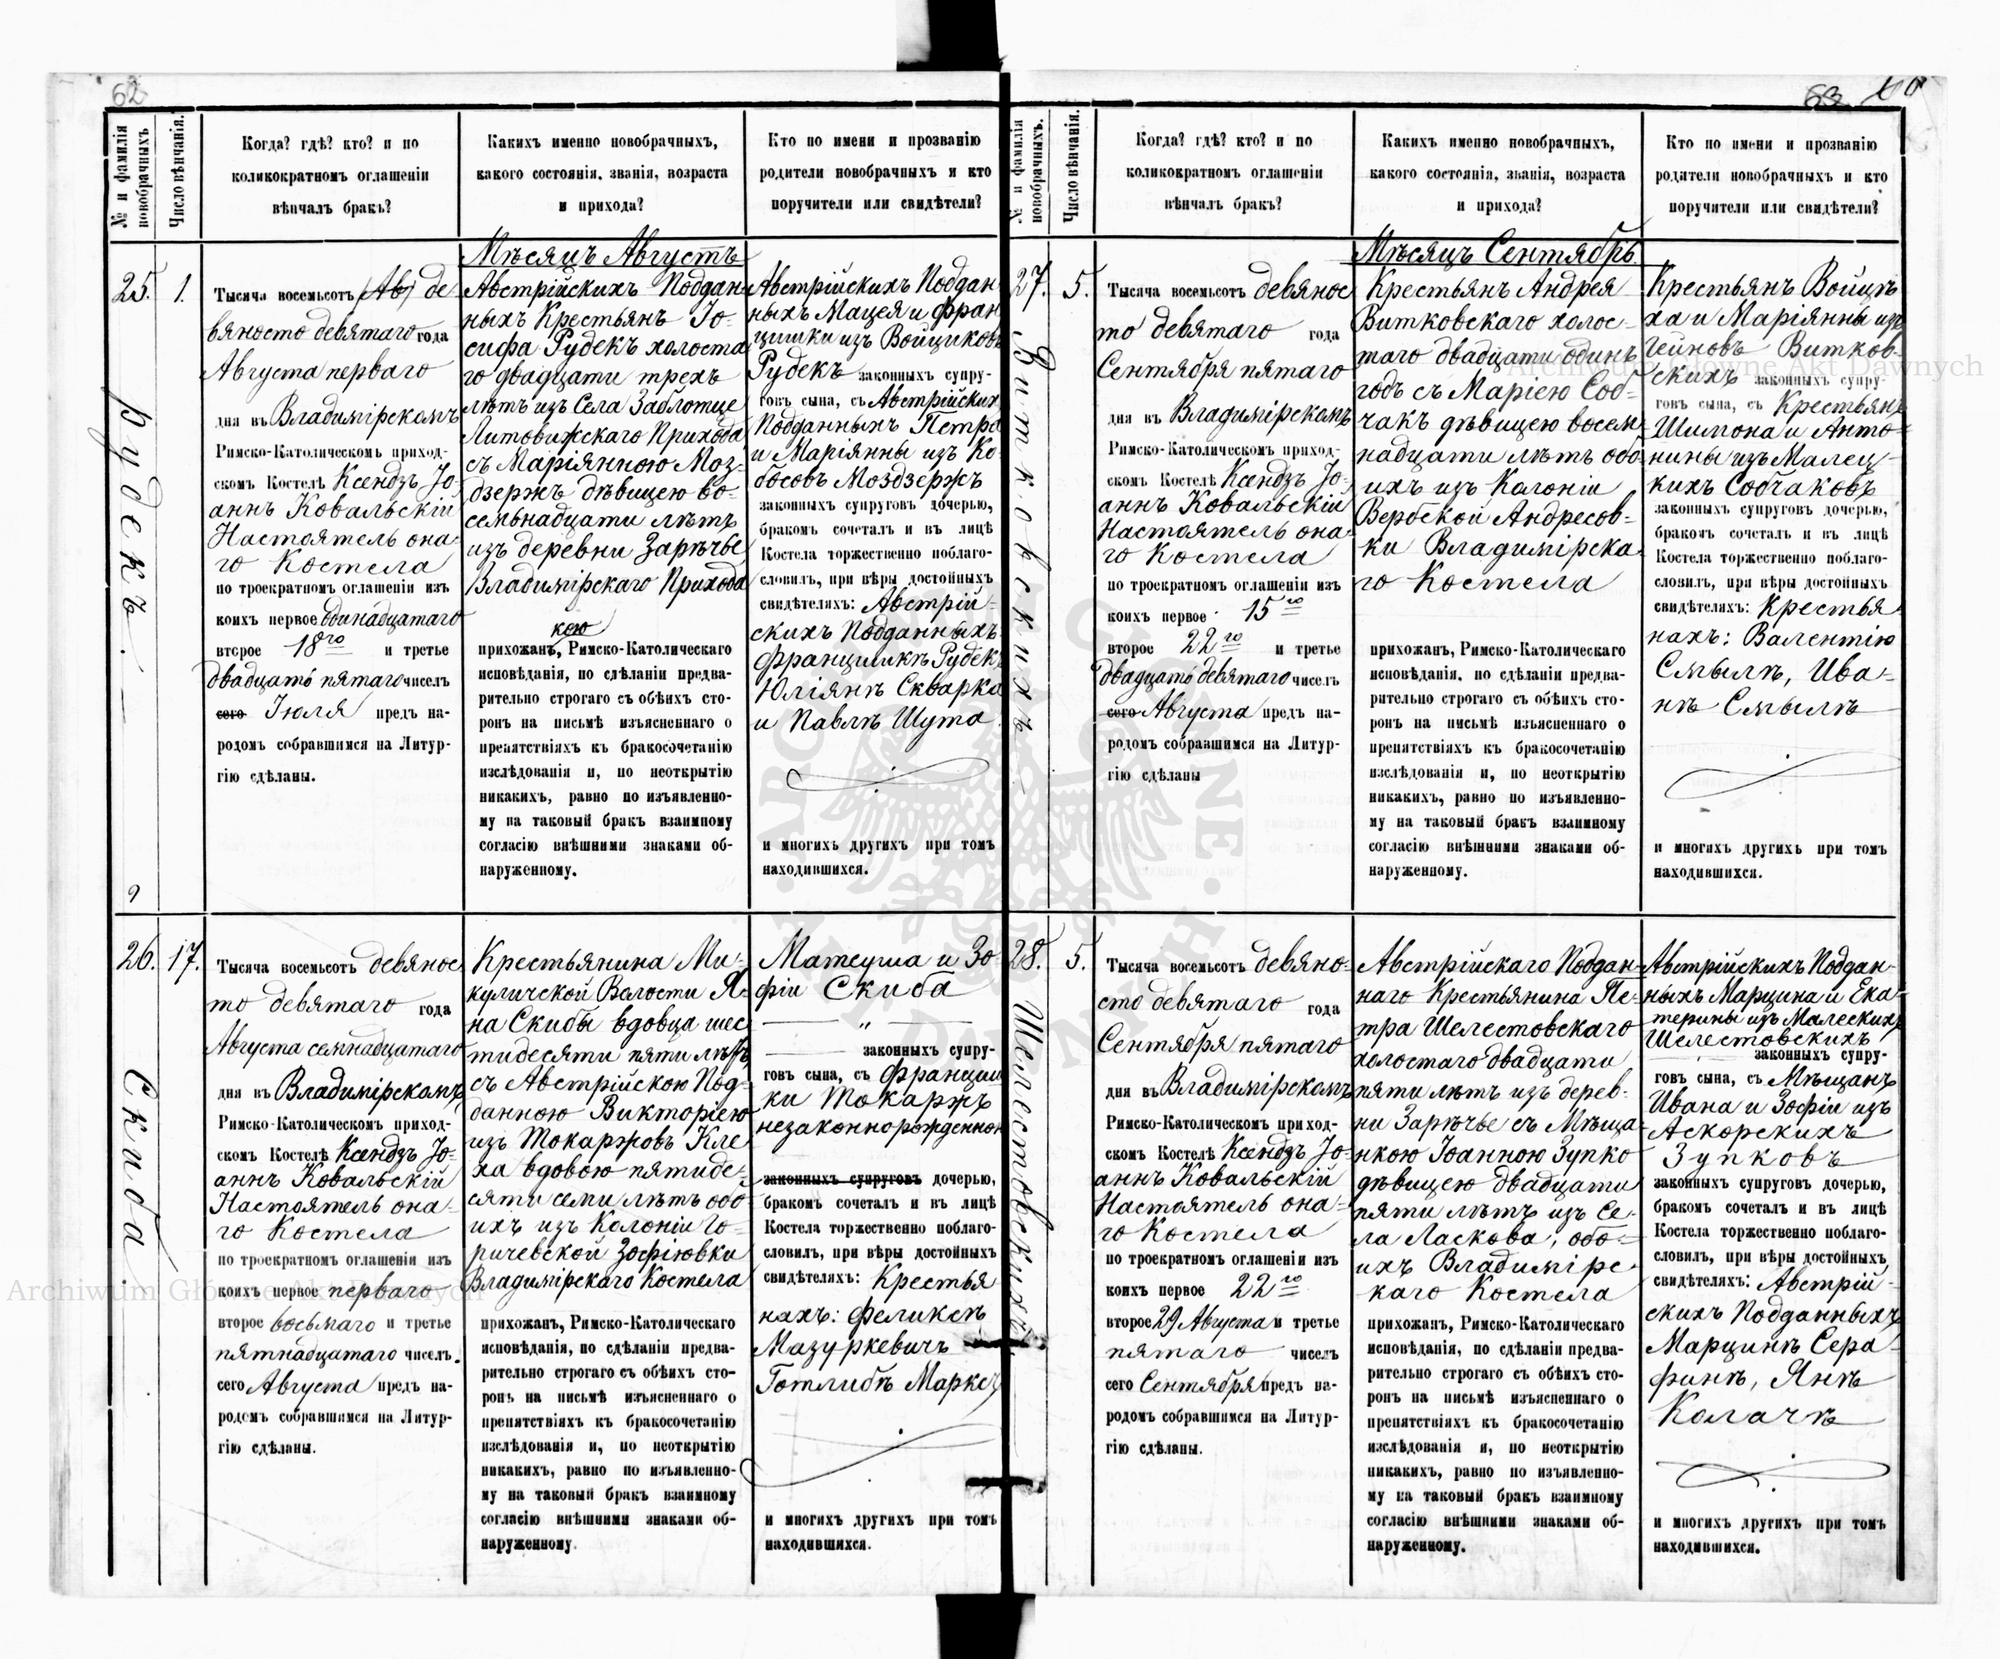 62
63 60
№ и фамилія новобрачныхъ
Число вѣнчанія.
Когда? гдѣ? кто? и по
коликократномъ оглашеніи
вѣнчалъ бракъ?
Какихъ именно новобрачныхъ,
какого состоянія, званія, возраста
и прихода?
Кто по имени и прозванію
родители новобрачныхъ и кто
поручители или свидѣтели?
Мѣсяцъ Августъ
25.
Рудекъ.
1.
Тысяча восемьсотъ де
вяносто девятаго года
Августа перваго
дня въ Владимірскомъ
Римско-Католическомъ приход-
скомъ Костелѣ Ксендзъ Іо-
аннъ Ковальскій
Настоятель она-
го Костела
по троекратномъ оглашеніи изъ
коихъ первое одинадцатаго
второе 18го и третье
двадцать пятаго чиселъ
сего Іюля предъ на-
родомъ собравшимся на Литур-
гію сдѣланы.
Австрійскихъ Поддан-
ныхъ Крестьянъ Іо-
сифа Рудекъ холоста
го двадцати трехъ
лѣтъ изъ Села Заблотце
Литовижскаго Прихода
съ Маріянною Моз-
дзержъ дѣвицею во-
семьнадцати лѣтъ
изъ деревни Зарѣчье
Владимірскаго Прихода
кою
прихожанъ, Римско-Католическаго
исповѣданія, по сдѣланіи предва-
рительно строгаго съ обѣихъ сто-
ронъ на письмѣ изъясненнаго о
препятствіяхъ къ бракосочетанію
изслѣдованія и, по неоткрытію
никакихъ, равно по изъявленно-
му на таковый бракъ взаимному
согласію внѣшними знаками об-
наруженному.
Австрійскихъ Поддан
ныхъ Мацея и Фран
цишки изъ Войциковъ
Рудекъ законныхъ супру-
говъ сына, съ Австрійскихъ
Подданныхъ Петра
и Маріянны изъ Ко-
босовъ Моздзержъ
законныхъ супруговъ дочерью,
бракомъ сочеталъ и въ лицѣ
Костела торжественно поблаго-
словилъ, при вѣры достойныхъ
свидѣтеляхъ: Австрій-
скихъ Подданныхъ
Францишкѣ Рудекъ
Юліянѣ Скварка
и Павлѣ Шута
и многихъ другихъ при томъ
находившихся.
26.
Скиба.
17.
Тысяча восемьсотъ девянос
то девятаго года
Августа семнадцатаго
дня въ Владимірскомъ
Римско-Католическомъ приход-
скомъ Костелѣ Ксендзъ Іо-
аннъ Ковальскій
Настоятель она-
го Костела
по троекратномъ оглашеніи изъ
коихъ первое перваго
второе восьмаго и третье
пятнадцатаго чиселъ.
сего Августа предъ на-
родомъ собравшимся на Литур-
гію сдѣланы.
Крестьянина Ми-
куличской Волости Я-
на Скибы вдовца шес
тидесяти пяти лѣтъ
съ Австрійскою Под-
данною Викторіею
изъ Токаржовъ Кле
ха вдовою пятиде-
сяти семи лѣтъ обо
ихъ изъ Колоніи Го-
ричевской Зофіювки
Владимірскаго Костела
прихожанъ, Римско-Католическаго
исповѣданія, по сдѣланіи предва-
рительно строгаго съ обѣихъ сто-
ронъ на письмѣ изъясненнаго о
препятствіяхъ къ бракосочетанію
изслѣдованія и, по неоткрытію
никакихъ, равно по изъявленно-
му на таковый бракъ взаимному
согласію внѣшними знаками об-
наруженному.
Матеуша и Зо-
фіи Скиба
— „ —
законныхъ супру-
говъ сына, съ Францишки
Токаржъ
незаконнорожденною
законныхъ супруговъ дочерью,
бракомъ сочеталъ и въ лицѣ
Костела торжественно поблаго-
словилъ, при вѣры достойныхъ
свидѣтеляхъ: Крестья
нахъ: Феликсѣ
Мазуркевичъ
Готлибѣ Марксъ
и многихъ другихъ при томъ
находившихся.
№ и фамилія новобрачныхъ.
Число вѣнчанія.
Когда? гдѣ? кто? и по
коликократномъ оглашеніи
вѣнчалъ бракъ?
Какихъ именно новобрачныхъ,
какого состоянія, званія, возраста
и прихода?
Кто по имени и прозванію
родители новобрачныхъ и кто
поручители или свидѣтели?
Мѣсяцъ Сентябрь
27.
Витковскихъ
5.
Тысяча восемьсотъ девянос
то девятаго года
Сентября пятаго
дня въ Владимірскомъ
Римско-Католическомъ приход-
скомъ Костелѣ Ксендзъ Іо-
аннъ Ковальскій
Настоятель она-
го Костела
по троекратномъ оглашеніи изъ
коихъ первое 15го
второе 22го и третье
двадцать девятаго чиселъ
сего Августа предъ на-
родомъ собравшимся на Литур-
гію сдѣланы
Крестьянъ Андрея
Витковскаго холос-
таго двадцати одинъ
годъ съ Маріею Соб-
чакъ дѣвицею восем
надцати лѣтъ обо
ихъ изъ Колоніи
Вербской Андресов-
ки Владимірска
го Костела
прихожанъ, Римско-Католическаго
исповѣданія, по сдѣланіи предва-
рительно строгаго съ обѣихъ сто-
ронъ на письмѣ изъясненнаго о
препятствіяхъ къ бракосочетанію
изслѣдованія и, по неоткрытію
никакихъ, равно по изъявленно-
му на таковый бракъ взаимному
согласію внѣшними знаками об-
наруженному.
Крестьянъ Войцѣ
ха и Маріянны изъ
Гейновъ Витков-
скихъ законныхъ супру-
говъ сына, съ Крестьянъ
Шимона и Анто-
нины изъ Малец-
кихъ Собчаковъ
законныхъ супруговъ дочерью,
бракомъ сочеталъ и въ лицѣ
Костела торжественно поблаго-
словилъ, при вѣры достойныхъ
свидѣтеляхъ: Крестья
нахъ: Валентію
Смыкѣ, Ива-
нѣ Смыкѣ
и многихъ другихъ при томъ
находившихся.
28.
Шелестовскихъ
5.
Тысяча восемьсотъ девяно-
сто девятаго года
Сентября пятаго
дня въ Владимірскомъ
Римско-Католическомъ приход-
скомъ Костелѣ Ксендзъ Іо-
аннъ Ковальскій
Настоятель она-
го Костела
по троекратномъ оглашеніи изъ
коихъ первое 22го
второе 29 Августа и третье
пятаго чиселъ
сего Сентября предъ на-
родомъ собравшимся на Литур-
гію сдѣланы.
Австрійскаго Поддан-
наго Крестьянина Пе-
тра Шелестовскаго
холостаго двадцати
пяти лѣтъ изъ дерев-
ни Зарѣчье съ Мѣща
нкою Іоанною Зупко
дѣвицею двадцати
пяти лѣтъ изъ Се-
ла Ласкова, обо-
ихъ Владимірс
каго Костела
прихожанъ, Римско-Католическаго
исповѣданія, по сдѣланіи предва-
рительно строгаго съ обѣихъ сто-
ронъ на письмѣ изъясненнаго о
препятствіяхъ къ бракосочетанію
изслѣдованія и, по неоткрытію
никакихъ, равно по изъявленно-
му на таковый бракъ взаимному
согласію внѣшними знаками об-
наруженному.
Австрійскихъ Поддан-
ныхъ Марцина и Ека
терины изъ Малескихъ
Шелестовскихъ
законныхъ супру-
говъ сына, съ Мѣщанъ
Ивана и Зофіи изъ
Аскорскихъ
Зупковъ
законныхъ супруговъ дочерью,
бракомъ сочеталъ и въ лицѣ
Костела торжественно поблаго-
словилъ, при вѣры достойныхъ
свидѣтеляхъ: Австрій-
скихъ Подданныхъ
Марцинѣ Сера-
финѣ, Янѣ
Колачѣ
и многихъ другихъ при томъ
находившихся.
Archiwum Główne Akt Dawnych
Archiwum Główne Akt Dawnych
ARCHIWUM GŁÓWNE AKT DAWNYCH